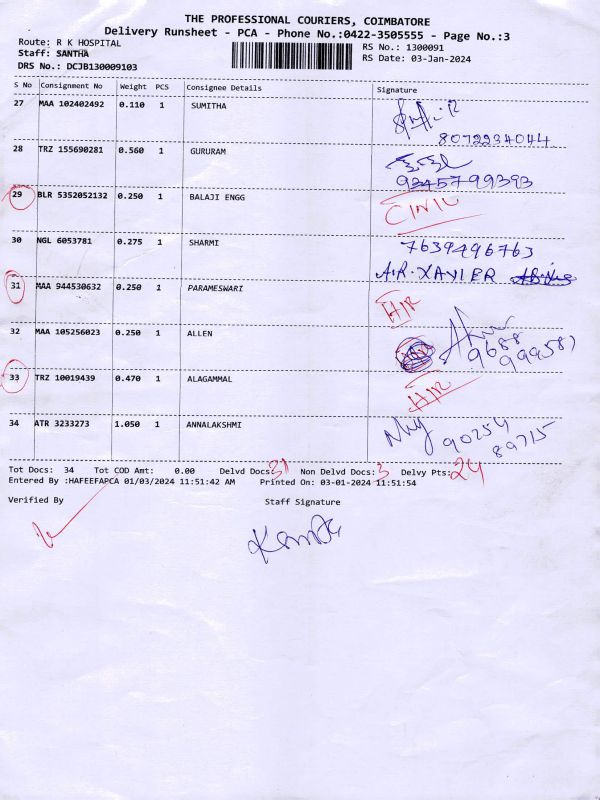 THE PROFESSIONAL COURIERS, COIMBATORE
Delivery Runsheet - PCA - Phone No.:0422-3505555 - Page No.:3
Route: R K HOSPITAL
RS No.: 1300091
Staff: SANTHA
RS Date: 03-Jan-2024
DRS No.: DCJB130009103
S No Consignment No Weight PCS Consignee Details Signature
27 MAA 102402492 0.110 1 SUMITHA
8072234044
28 TRZ 155690281 0.560 1 GURURAM
9345799393
29 BLR 5352052132 0.250 1 BALAJI ENGG
30 NGL 6053781 0.275 1 SHARMI 7639496763
A.R. XAVIER
31 MAA 944530632 0.250 1 PARAMESWARI
32 MAA 105256023 0.250 1 ALLEN
33 TRZ 10019439 0.470 1 ALAGAMMAL
34 ATR 3233273 1.050 1 ANNALAKSHMI 90254
89715
Tot Docs: 34 Tot COD Amt: 0.00 Delvd Docs: 31 Non Delvd Docs: 3 Delvy Pts: 24
Entered By :HAFEEFAPCA 01/03/2024 11:51:42 AM Printed On: 03-01-2024 11:51:54
Verified By Staff Signature